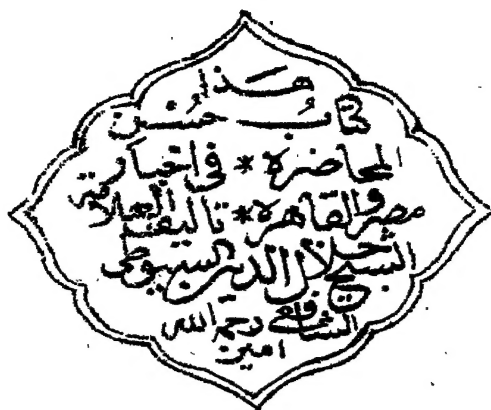 هَذا
كتابُ حُسْن
المحاضرة * في اخبار
مصر والقاهرة * تاليف العلامة
الشيخ جلال الدين السيوطى
الشافعي رحمه الله
امين